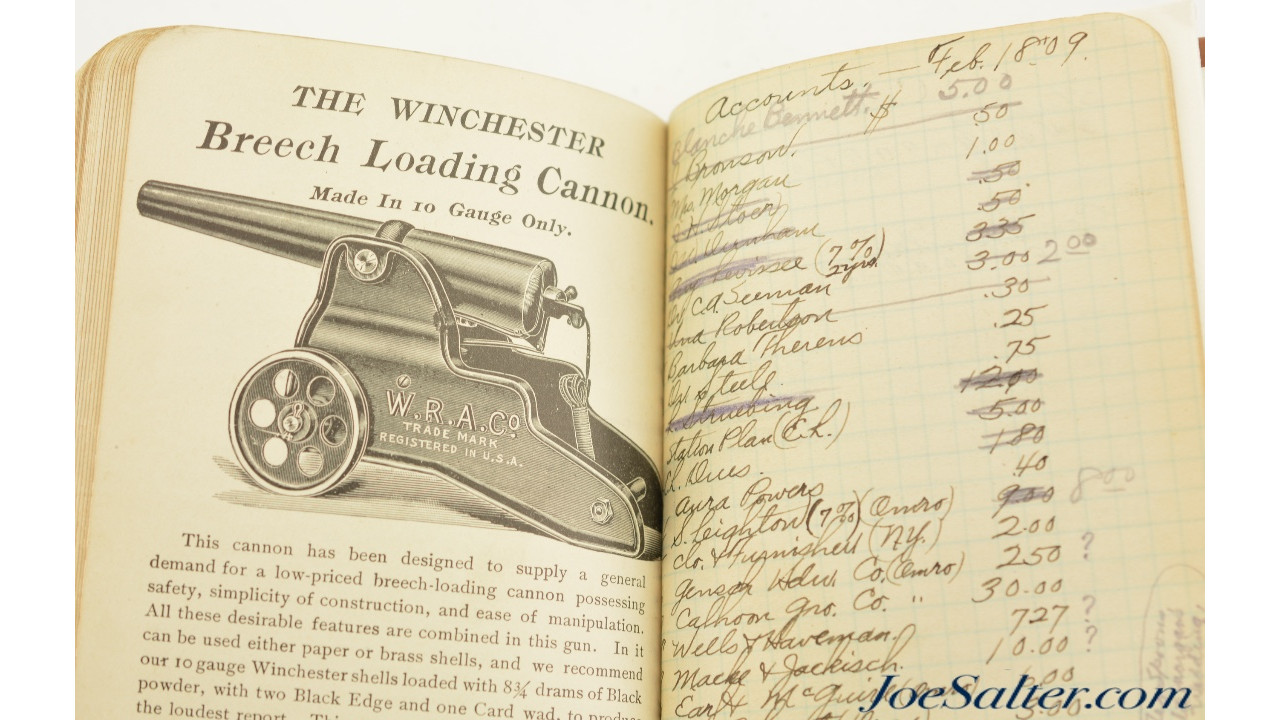 THE WINCHESTER
Breech Loading Cannon.
Made In 10 Gauge Only.
W.R.A.Co
TRADE MARK
REGISTERED IN U.S.A.
This cannon has been designed to supply a general
demand for a low-priced breech-loading cannon possessing
safety, simplicity of construction, and ease of manipulation.
All these desirable features are combined in this gun. In it
can be used either paper or brass shells, and we recommend
our 10 gauge Winchester shells loaded with 8¾ drams of Black
powder, with two Black Edge and one Card wad, to produce
the loudest report.
Accounts. — Feb. 18 '09.
Blanche Bennett. $ 5.00
Bronson. .50
Mrs. Morgan 1.00
.50
.50
(7% 2 yrs.) 335
C.A. Seeman 3.00 2.00
Robertson .30
Barbara Therens .25
Steele .75
Struebing 12.00
Station Plan (Ch.) 5.00
Ch. Dues. 1 80
Aura Powers .40
S. Leighton (7%) (Omro) 9.00 8.00
Clo. & Furnished (N.Y.) 2.00
Hdw. Co. (Omro) 2 50 ?
Calhoon Gro. Co. " 30.00
Wells & Haveman. 7 27 ?
Macke & Jackisch. 10.00 ?
Earl & McGuire
JoeSalter.com